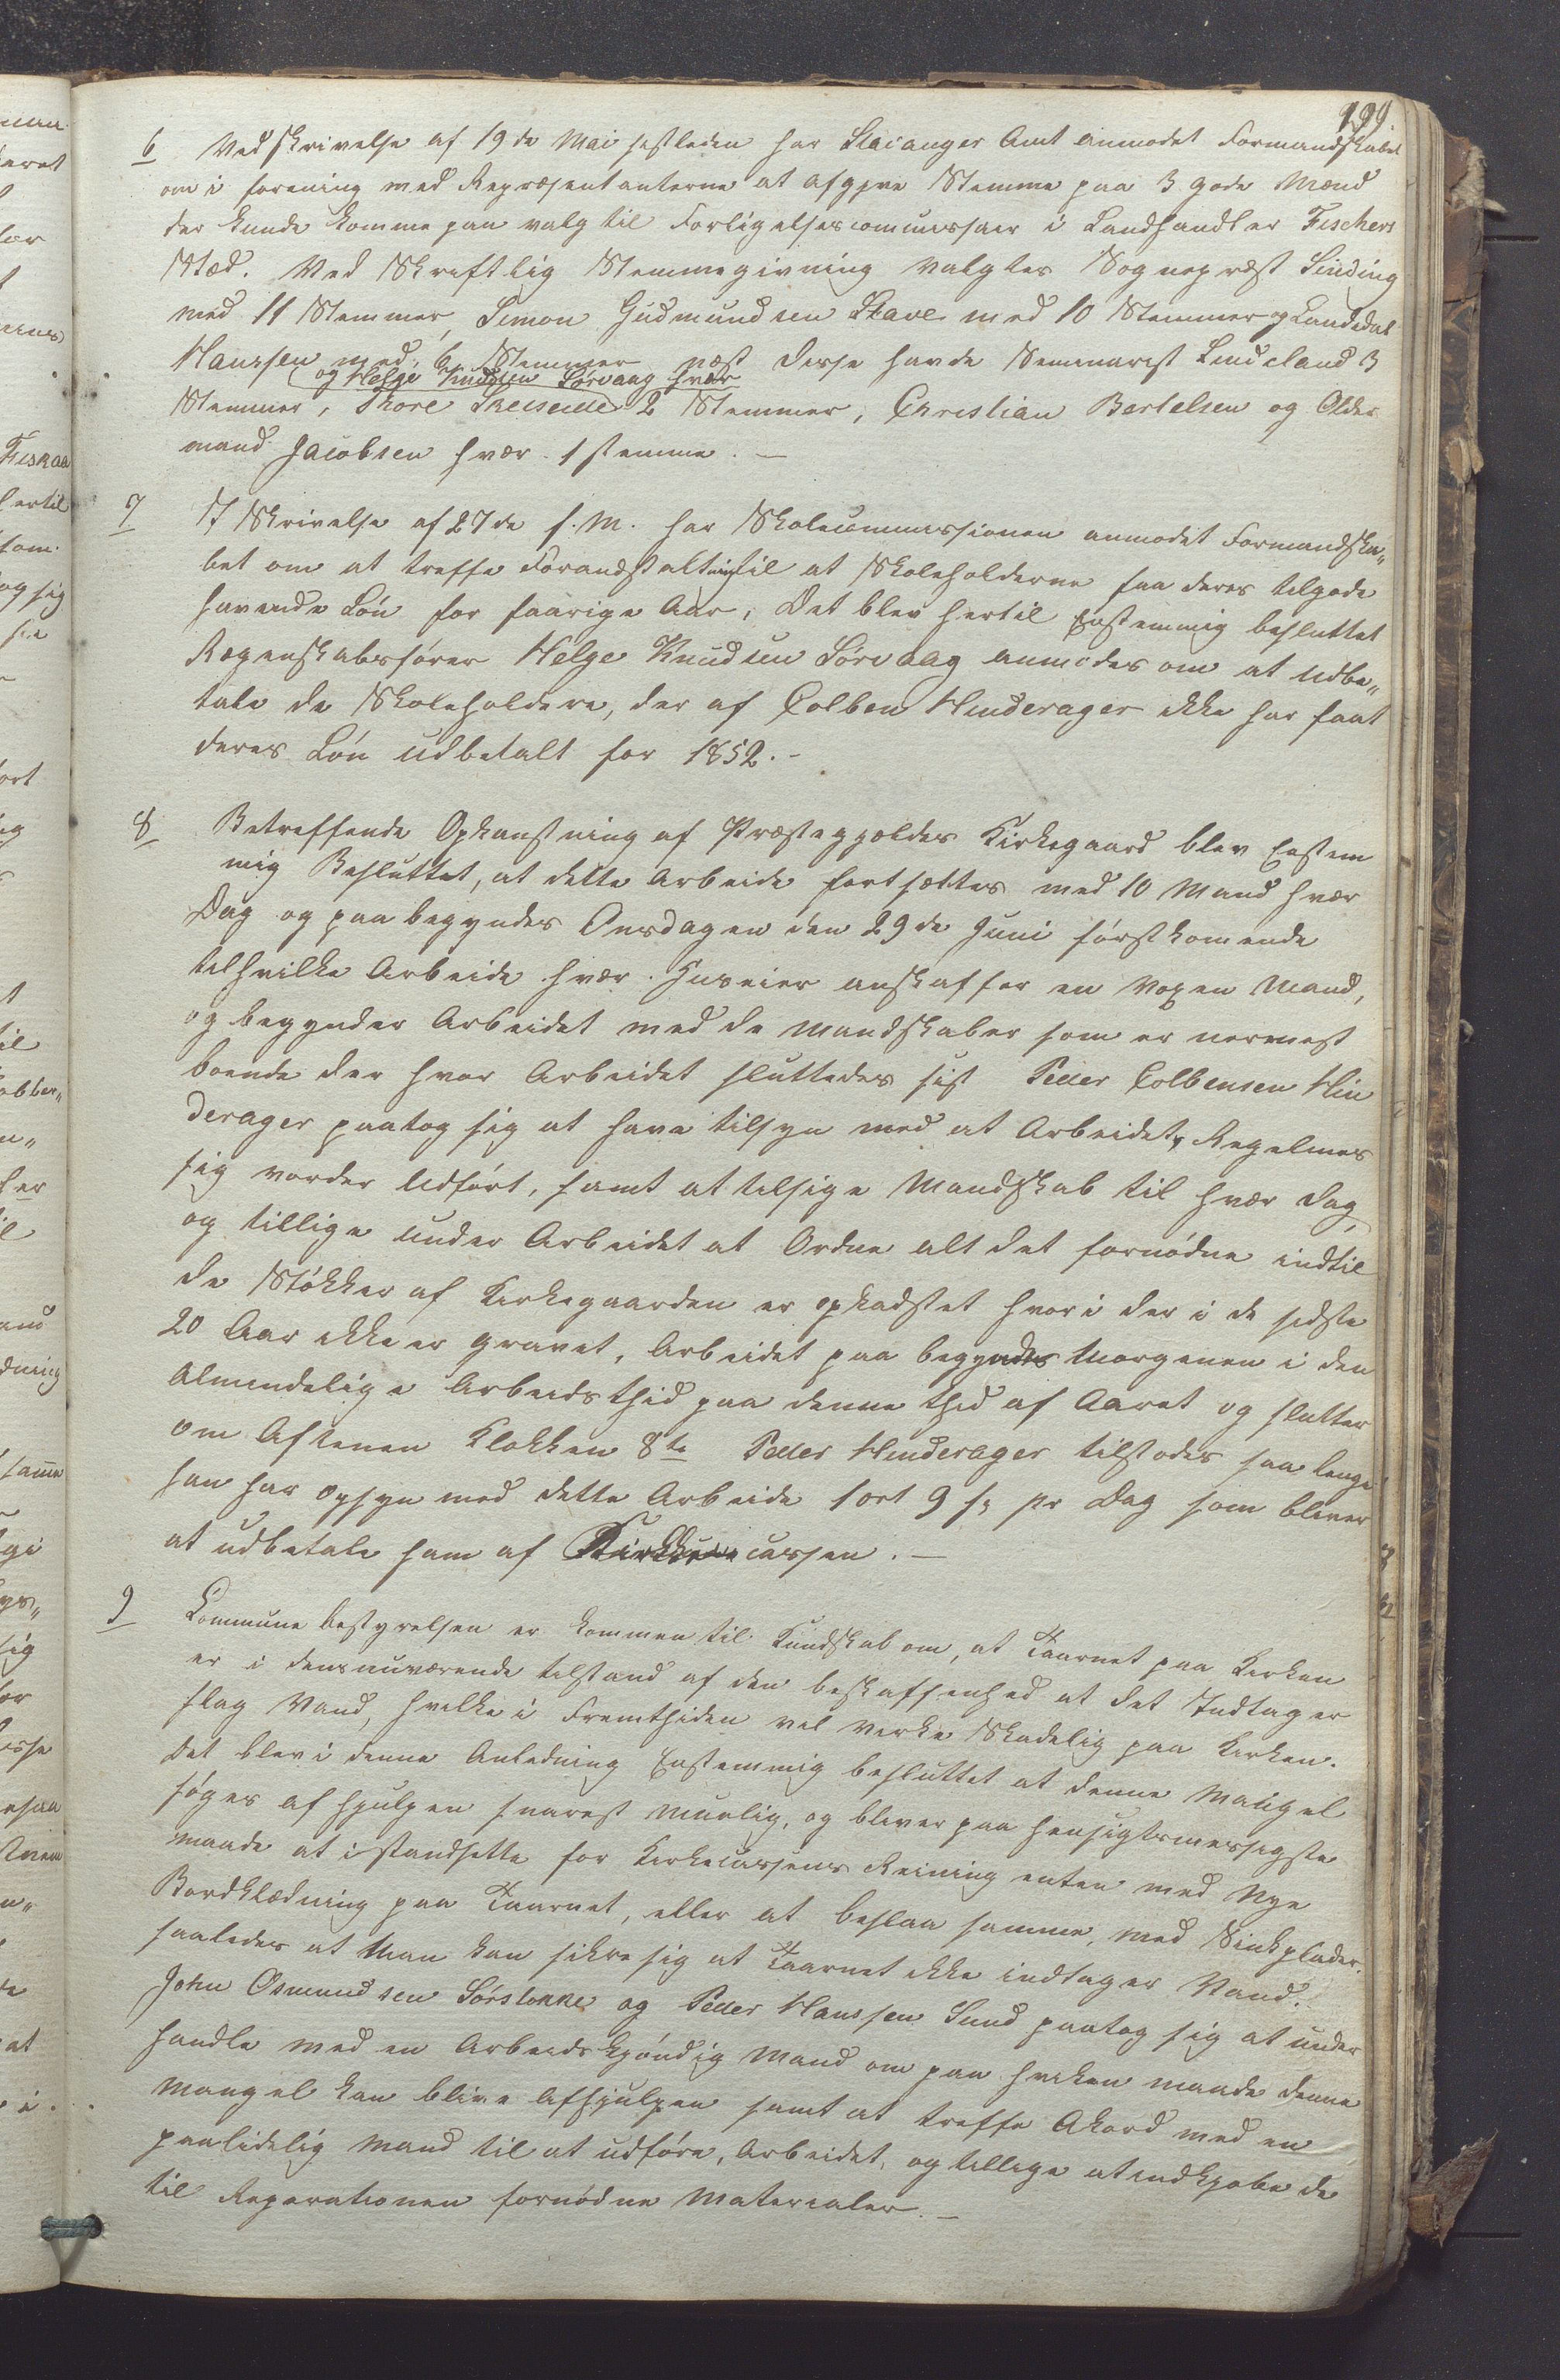 199
6 Ved Skrivelse af 19de Mai sistleden har Stavanger Amt anmodet Formandskabet
om i forening med Repræsentanterne at afgyve Stemme paa 3 gode Mænd
der kunde komme paa valg til Forligelsescommissair i Landhandler Fischers
Stæd. Ved Skriftlig Stemmegivning valgtes Sognepræst Sinding
med 11 Stemmer, Simon Gudmundsen Stave med 10 Stemmer og Candidat
Hanssen med 6 Stemmer næst disse havde Seminarist Lindeland 3
og Helge Knudsen Sørvaag hver
Stemmer, Thore 2 Stemmer, Christian Bertelsen og Older
mand Jacobsen hver 1 stemme. —
7 I Skrivelse af 27de f. M. har Skolecommissionen anmodet Formandska„
bet om at treffe Forandstaltning til at Skoleholderne faa deres tilgode
havende Løn for faarige Aar, Det blev hertil Enstemmig besluttet
Regenskabsfører Helge Knudsen Sørvaag anmodes om at udbe„
tale de Skoleholdere, der af Colben Hinderager ikke har faat
deres Løn udbetalt for 1852. -
8 Betreffende Opkanstning af Præstegjældes Kirkegaard blev Enstem
mig Besluttet, at dette Arbeide fortsættes med 10 Mand hver
Dag og paabegyndes Onsdagen den 29de Juni førstkomende
til hvilke Arbeide hver Huseier anskaffer en voxen Mand,
og begynder Arbeidet med de Mandskaber som er nermest
boende der hvor Arbeidet sluttedes sist Peder Colbensen Hin
derager paatog sig at have tilsyn med at Arbeidet Regelmes
sig vorder Udført, samt at tilsige Mandskab til hver dag,
og tillige under Arbeidet at Ordne alt det fornødne indtil
de Støkker af Kirkegaarden er opkadstet hvori der i de sidste
20 Aar ikke er gravet, Arbeidet paa begyndes Morgenen i den
Almindelige Arbeidsthid paa denne thid af Aaret og slutter
om Aftenen Klokken 8te Peder Hinderager tilstodes saa lenge
han har opsyn med dette Arbeide 1 ort 9 s pr Dag som bliver
at udbetale ham af cassen. —
9 Commune bestyrelsen er kommen til Kundskab om, at Taarnet paa Kirken
er i dens nuværende tilstand af den beskaffenhed at det Indtager
slag Vand, hvilke i Fremthiden vel verke Skadelig paa Kirken.
det blev i denne Anledning Enstemmig besluttet at denne Mangel
søges afhjulpen snarest muelig, og bliver paa hensigtsmessigste
maade at i standsette for Kirkecassens Reining enten med Nye
Bordklædning paa Taarnet, eller at beslaa samme, med Sinkplader.
saaledes at Man kan sikre sig at Taarnet ikke indtager Vand.
John Osmundsen Sørstokke og Peder Hanssen Sund paatog sig at under
handle med en Arbeidskyndig Mand om paa hviken maade denne
Mangel kan blive Afhjulpen samt at treffe Akord med en
paalidelig Mand til at udføre, Arbeidet, og tillige at indkjøbe de
til Reparationen fornødne Materialer. —